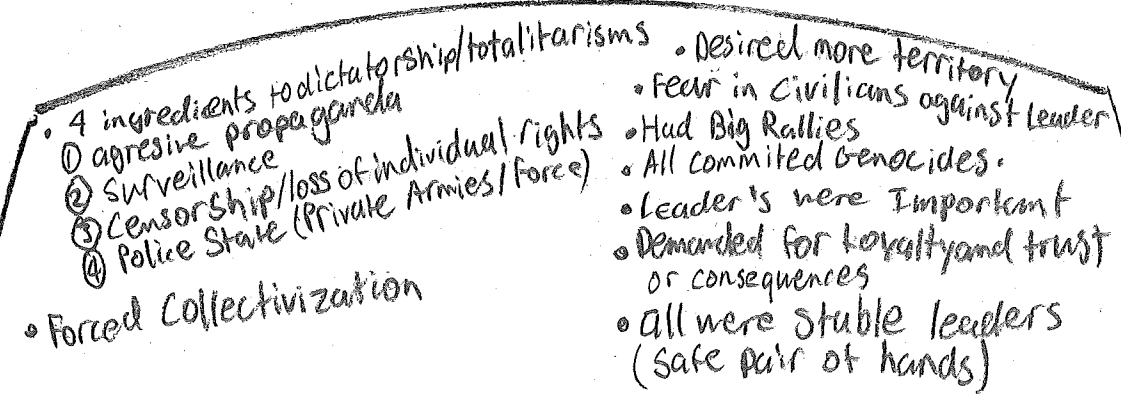 • 4 ingredients to dictatorship/totalitarisms
① agresive propaganda
② Surveillance
③ Censorship/loss of individual rights
④ Police State (Private Armies/Force)
• Forced Collectivization
• Desired more territory
• Fear in Civilians against Leader
• Had Big Rallies
• All Commited Genocides.
• Leader's were Important
• Demanded for Loyalty and trust
or consequences
• all were stable leaders
(safe pair of hands)